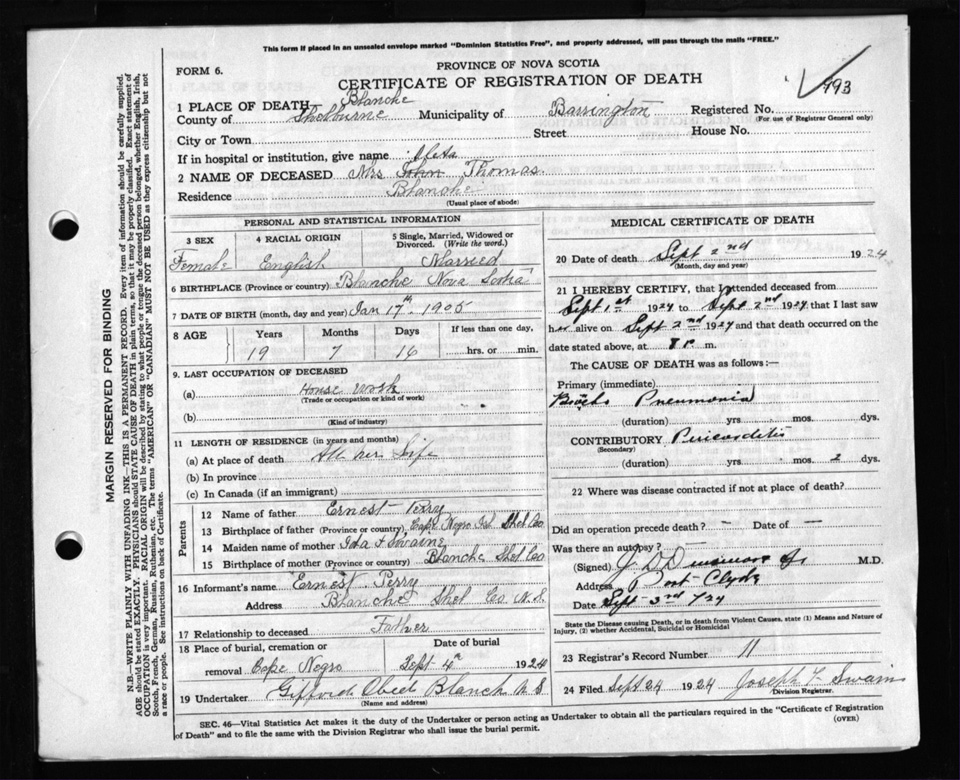 This form if placed in an unsealed envelope marked "Dominion Statistics Free", and properly addressed, will pass through the mails "FREE."
FORM 6.
PROVINCE OF NOVA SCOTIA
CERTIFICATE OF REGISTRATION OF DEATH
793
1 PLACE OF DEATH Blanche
County of Shelburne Municipality of Barrington Registered No.
(For use of Registrar General only)
City or Town Street House No.
If in hospital or institution, give name
2 NAME OF DECEASED Mrs John Thomas
Residence Blanche
(Usual place of abode)
PERSONAL AND STATISTICAL INFORMATION
3 SEX 4 RACIAL ORIGIN 5 Single, Married, Widowed or Divorced. (Write the word.)
Female English Married
6 BIRTHPLACE (Province or country) Blanche Nova Scotia
7 DATE OF BIRTH (month, day and year) Jan 17th 1905
8 AGE Years Months Days If less than one day,
19 7 16 hrs. or min.
9. LAST OCCUPATION OF DECEASED
(a) House work
(Trade or occupation or kind of work)
(b)
(Kind of industry)
11 LENGTH OF RESIDENCE (in years and months)
(a) At place of death All her Life
(b) In province
(c) In Canada (if an immigrant)
Parents
12 Name of father Ernest Perry
13 Birthplace of father (Province or country) Cape Negro Isl Shel Co
14 Maiden name of mother Ida Swaine
15 Birthplace of mother (Province or country) Blanche Shel Co
16 Informant's name Ernest Perry
Address Blanche Shel Co. N.S.
17 Relationship to deceased Father
18 Place of burial, cremation or Date of burial
removal Cape Negro Sept 4th 1924
19 Undertaker Gifford Obed Blanch N S
(Name and address)
MEDICAL CERTIFICATE OF DEATH
20 Date of death Sept 2nd 1924
(Month, day and year)
21 I HEREBY CERTIFY, that I attended deceased from
Sept 1st 1924 to Sept 2nd 1924 that I last saw
her alive on Sept 2nd 1924 and that death occurred on
date stated above, at 8 P. m.
The CAUSE OF DEATH was as follows:—
Primary (immediate)
Pneumonia
(duration) yrs mos. dys.
CONTRIBUTORY Pericarditis
(Secondary)
(duration) yrs mos. 2 dys.
22 Where was disease contracted if not at place of death?
Did an operation precede death? – Date of —
Was there an autopsy?
(Signed) M.D.
Address Port Clyde
Date Sept 3rd /24
State the Disease causing Death, or in death from Violent Causes, state (1) Means and Nature of
Injury, (2) whether Accidental, Suicidal or Homicidal
23 Registrar's Record Number 11
24 Filed Sept 24 1924 Joseph F Swain
Division Registrar.
SEC. 46—Vital Statistics Act makes it the duty of the Undertaker or person acting as Undertaker to obtain all the particulars required in the "Certificate of Registration
of Death" and to file the same with the Division Registrar who shall issue the burial permit.
(OVER)
MARGIN RESERVED FOR BINDING
N.B.—WRITE PLAINLY WITH UNFADING INK—THIS IS A PERMANENT RECORD. Every item of information should be carefully supplied.
AGE should be stated EXACTLY. PHYSICIANS should STATE CAUSE OF DEATH in plain terms, so that it may be properly classified. Exact statement of
OCCUPATION is very important. RACIAL ORIGIN will be described by stating to what people or tongue the deceased person belonged, whether English, Irish,
Scotch, French, German, Russian, Ruthenian, etc. The terms "AMERICAN" OR "CANADIAN" MUST NOT BE USED as they express citizenship but not
a race or people. See instructions on back of Certificate.